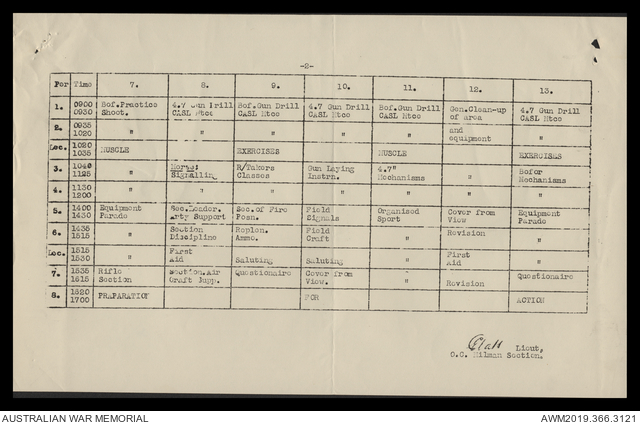 -2-
Per Time 7. 8. 9. 10. 11. 12. 13.
1. 0900 Bof.Practice 4.7 Gun Drill Bof.Gun Drill 4.7 Gun Drill Bof.Gun Drill Gen.Clean-up 4.7 Gun Drill
0930 Shoot. CASL Mtce CASL Mtce CASL Mtce CASL Mtce of Area CASL Mtce
2. 0935 and
1020 " " " " " equipment "
Lec. 1020
1035 MUSCLE EXERCISES MUSCLE EXERCISES
3. 1040 Morse: R/Takers Gun Laying 4.7" Bofor
1125 " Signalling Classes Instrn. Mechanisms " Mechanisms
4. 1130
1200 " " " " " " "
5. 1400 Equipment Sec.Leader. Sec.of Fire Field Organised Cover from Equipment
1430 Parade Arty Support Posn. Signals Sport View Parade
6. 1435 Section Replen. Field Revision
1515 " Discipline Ammo. Craft " "
Lec. 1515 First First
1530 " Aid Saluting Saluting " Aid "
7. 1535 Rifle Section.Air Questionaire Cover from Questionaire
1615 Section Craft Supp. View. " Revision
8. 1620
1700 PREPARATION FOR ACTION
Lieut,
O.C. Milman Section.
AUSTRALIAN WAR MEMORIAL AWM2019.366.3121